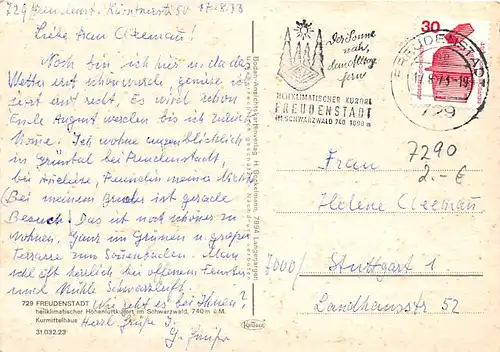 729 Freudenst. Kärntnerstr 50 17.8.73
Liebe Frau Clemau!
Noch bin ich hier u. da das
Wetter erst schön wurde, genieße ich
jetzt erst recht. Es wird schon
Ende August werden bis ich zurück
komme. Ich wohne augenblicklich
in Grüntal bei Freudenstadt,
bei Freundin meiner Nichte
(Bei meinem Bruder ist gerade
Besuch. Das ist noch schöner zu
wohnen. Ganz im Grünen u. große
Terrasse zum Sonnenbaden. Man
schläft herrlich bei offenem Fenster
und kühle Schwarzluft.
Wie geht es bei Ihnen?
Herzl. Grüße I.
729 FREUDENSTADT
heilklimatischer Höhenluftkurort im Schwarzwald, 740 m ü. M.
Kurmittelhaus
31.032.23
Krüger
Boden-Ansichtskartenverlag H. Bockelmann,
Der Sonne
nah,
dem Alltag
fern
HEILKLIMATISCHER KURORT
FREUDENSTADT
IM SCHWARZWALD 740 1000 m
30
FREUDENSTADT
17.8.73-19
729
7290
2.- €
Frau
Helene Clemau
7000/ Stuttgart 1
Landhausstr 52